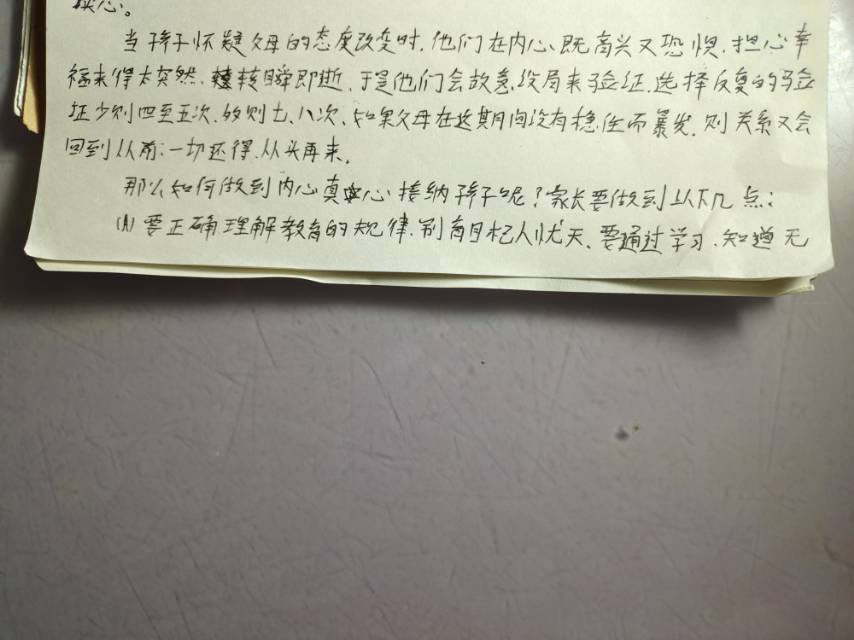 换心。
当孩子怀疑父母的态度改变时,他们在内心既高兴又恐惧,担心幸
福来得太突然,转瞬即逝,于是他们会故意设局来验证,选择反复的验
证少则四至五次,多则七、八次,如果父母在这期间没有稳住而暴发,则关系又会
回到从前,一切还得从头再来。
那么如何做到内心真心接纳孩子呢?家长要做到以下几点:
(1)要正确理解教育的规律,别盲目杞人忧天,要通过学习,知道无